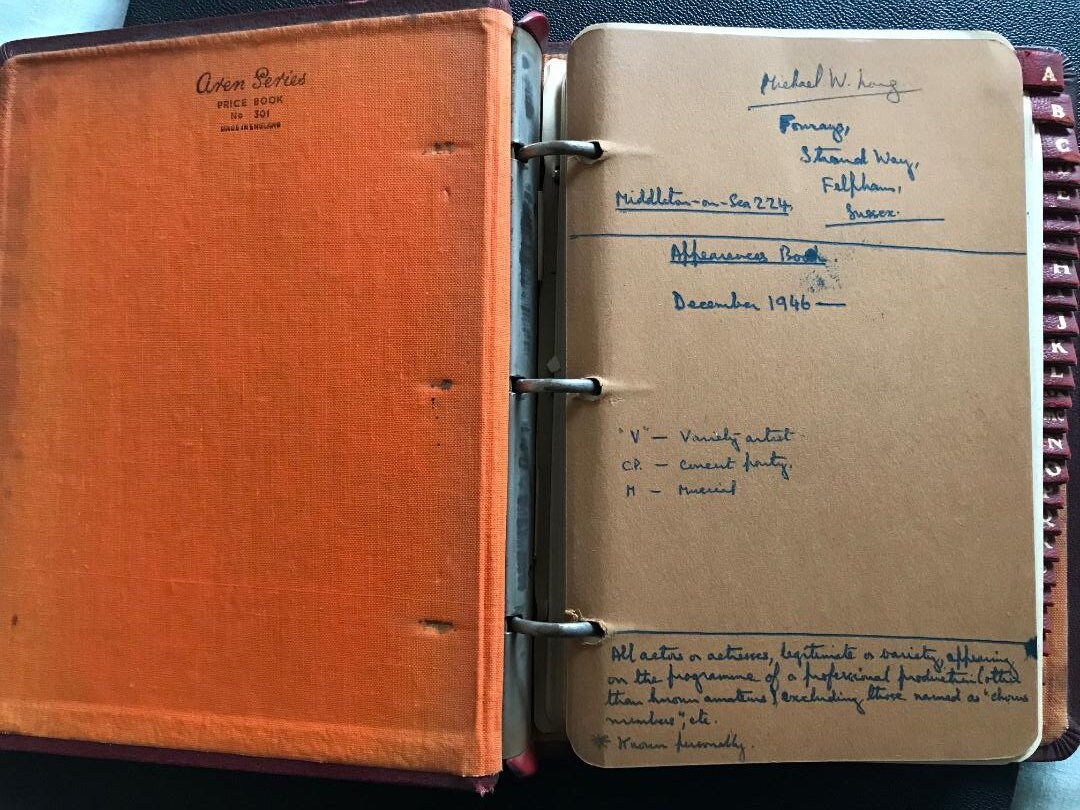 Aren Series
PRICE BOOK
No 301
MADE IN ENGLAND
Michael W. Long
Fourays,
Strand Way,
Felpham,
Middleton-on-Sea 224.
Sussex.
Appearances Book.
December 1946 —
"V" — Variety artist
CP. — Concert party.
M — Musical
All actors or actresses, legitimate or variety, appearing
on the programme of a professional production (other
than known amateurs), excluding those named as "chorus
members", etc.
* Known personally.
A
B
C
E
H
J
K
L
N
O